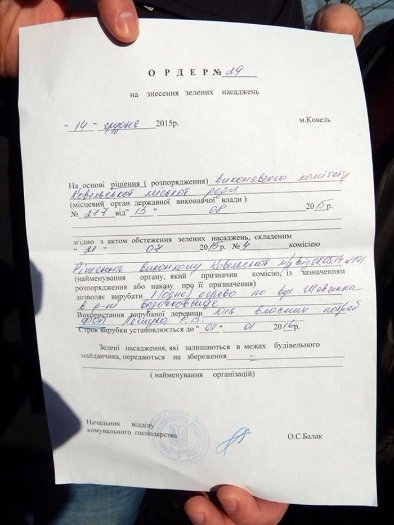 О Р Д Е Р № 29
на знесення зелених насаджень
" 14 " грудня 2015р. м.Ковель
На основі рішення ( розпорядження) виконавчого комітету
Ковельської міської ради
(місцевий орган державної виконавчої влади )
№ 277 від " 13 " 08 2015р.
згідно з актом обстеження зелених насаджень, складеним
" 21 " 2015р. № 4 комісією
Рішення виконкому Ковельської м/р від
(найменування органу, який призначив комісію, із зазначенням
розпорядження або наказу про її призначення)
дозволяє вирубати 1(одне) дерево по вул Шевченка
в р-ні
Використання вирубаної деревини для власних потреб
ФОП
Строк вирубки установлюється до " 08 " 01 2016р.
Зелені насадження,які залишаються в межах будівельного
майданчика, передаються на збереження
( найменування організацій)
Начальник відділу
комунального господарства О.С.Балак